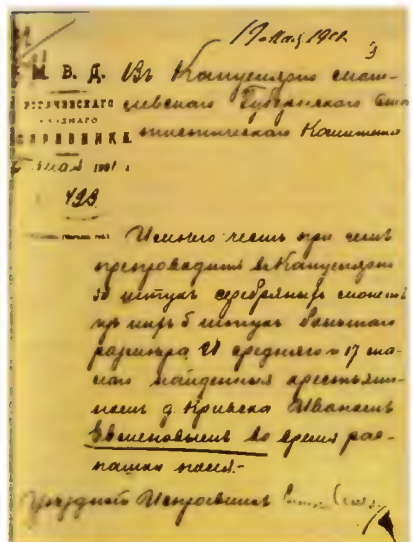 М. В. Д.
УѢЗДНАГО
ИСПРАВНИКА
мая 1901 г.
Въ Канцелярію Моги-
левскаго Губернскаго Ста
тистическаго Комитета
Имѣю честь при семъ
препроводить въ Канцелярію
штукъ серебряныхъ монетъ
изъ нихъ 5 штукъ большаго
размѣра, средняго и 17 ма-
лаго найденныя крестьяни-
номъ д. Кривска Иваномъ
во время рас-
пашки поля.-
Уѣздный Исправникъ